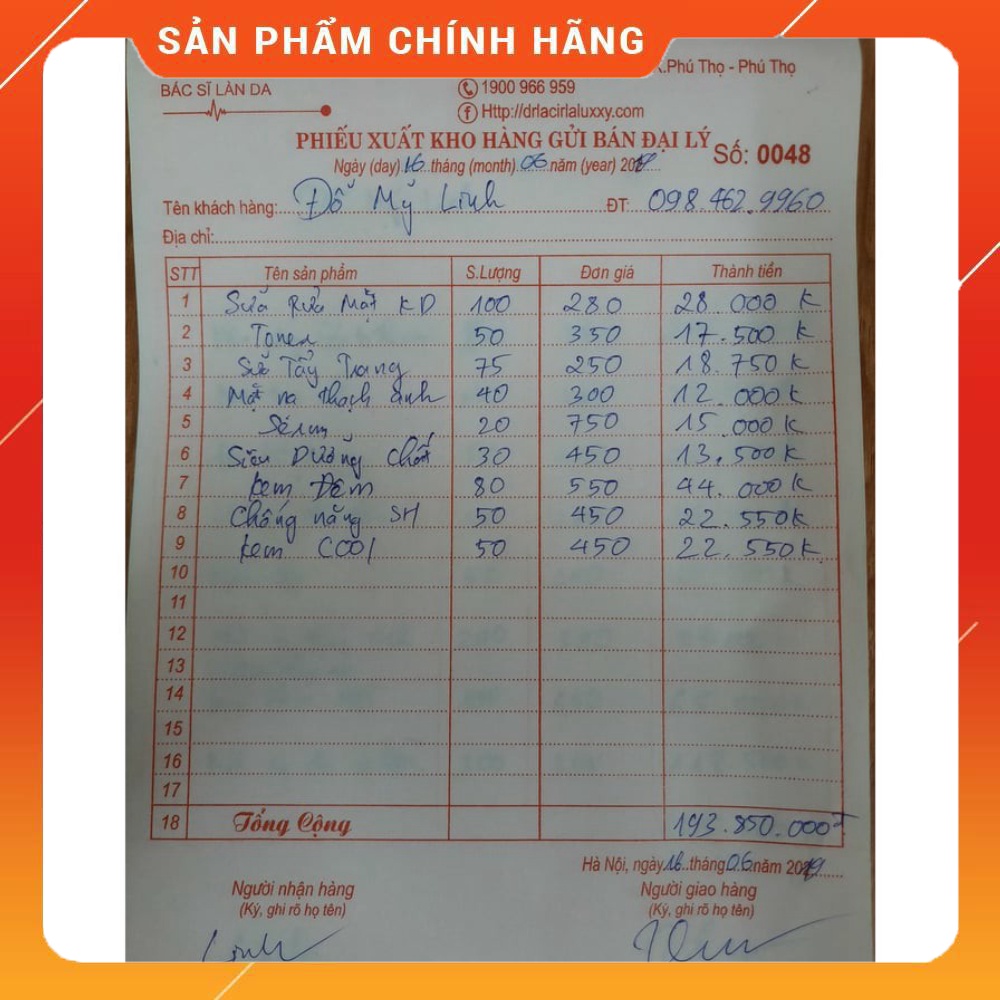 SẢN PHẨM CHÍNH HÃNG
.Phú Thọ - Phú Thọ
BÁC SĨ LÀN DA
1900 966 959
Http://drlacirlaluxxy.com
PHIẾU XUẤT KHO HÀNG GỬI BÁN ĐẠI LÝ Số: 0048
Ngày (day) 16 tháng (month) 06 năm (year) 2019
Tên khách hàng: Đỗ Mỹ Linh ĐT: 098.462.9960
Địa chỉ:
STT Tên sản phẩm S.Lượng Đơn giá Thành tiền
1 Sữa Rửa Mặt KD 100 280 28.000 K
2 Toner 50 350 17.500 K
3 Sữa Tẩy Trang 75 250 18.750 K
4 Mặt na thạch anh 40 300 12.000 K
5 Sêrum 20 750 15.000 K
6 Siêu Dưỡng Chất 30 450 13.500 K
7 Kem Đêm 80 550 44.000 K
8 Chống nắng SH 50 450 22.550 K
9 Kem COOl 50 450 22.550 K
10
11
12
13
14
15
16
17
18 Tổng Cộng 193.850.000
Hà Nội, ngày 16 tháng 06 năm 2019
Người nhận hàng Người giao hàng
(Ký, ghi rõ họ tên) (Ký, ghi rõ họ tên)
Linh